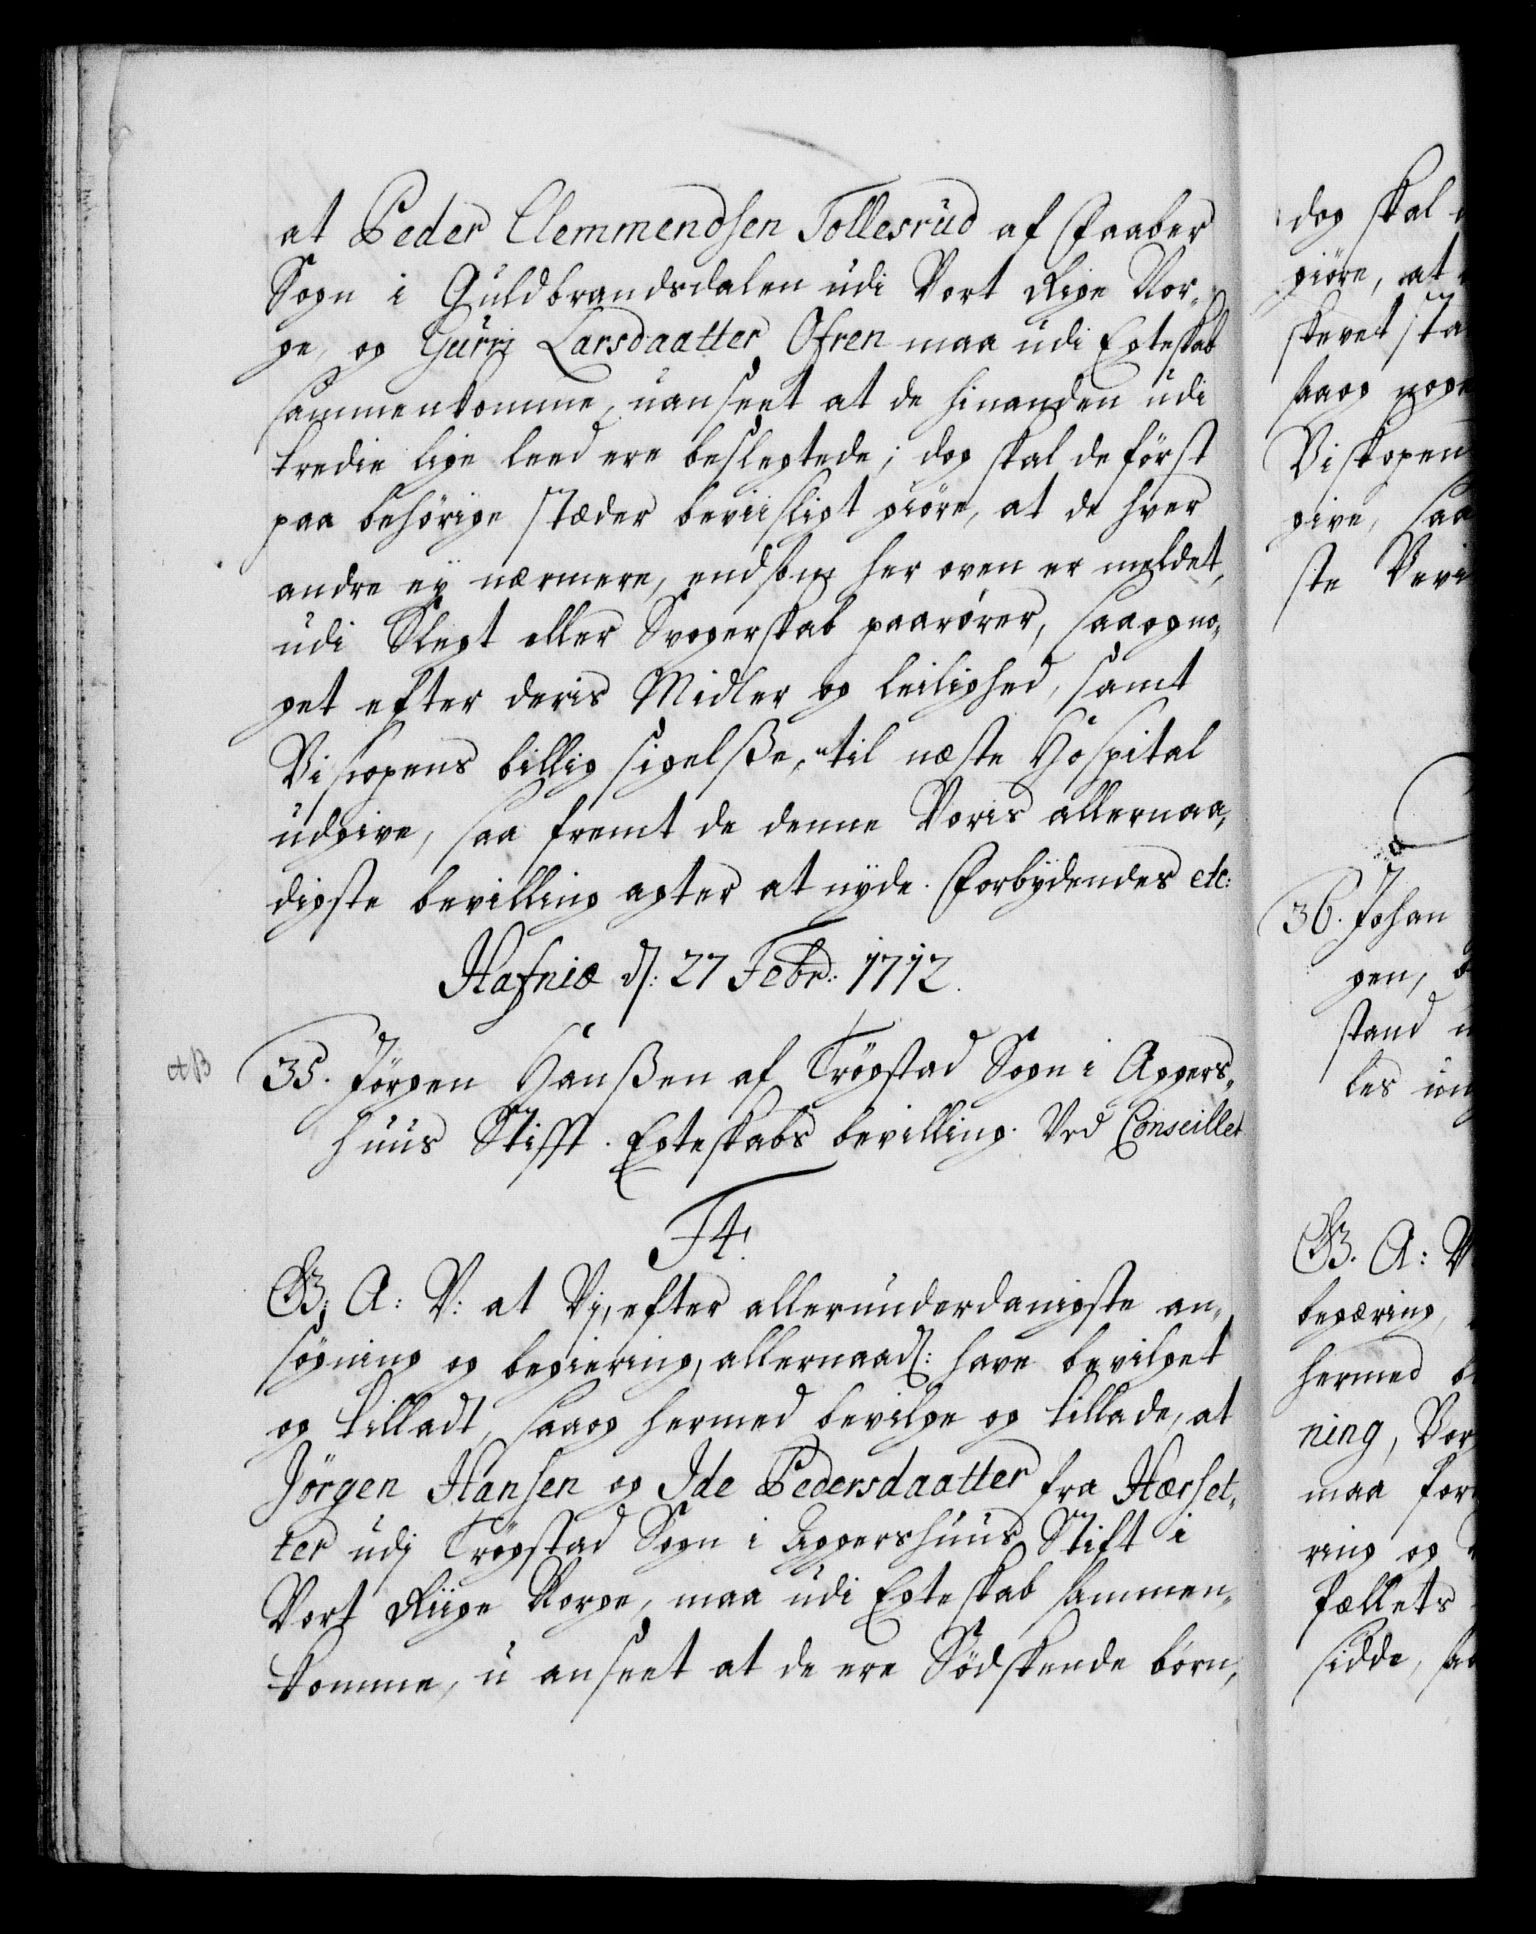 at Peder Clemmendsen Tollesrud af Faaber
Sogn i Guldbrandsdalen udi Vort Rige Nor-
ge, og Gurri Larsdaatter Ofren maa udi Egteskab
sammenkomme, uanseet at de hinanden udi
tredie lige leed ere beslegtede; dog skal de først
paa behörige stæder beviisligt giöre, at de hver
andre ey nærmere, end som her oven er meldet,
udi Slegt eller Svogerskab paarörer, saa og no-
get efter deris Midler og leilighed, samt
Biscopens billig sigelsse, til næste Hospital
udgive, saa fremt de denne Voris allernaa-
digste bevilling agter at nyde. Forbydendes etc:
Hafniæ d: 27 Febr: 1712.
35. Jörgen Hanssen af Trögstad Sogn i Agers-
huus Stifft. Egteskabs bevilling. Ved Conseillet
F4.
G: A: V: at Vj, efter allerunderdanigste an-
søgning og begiering, allernaad: have bevilget
og tilladt, saa og hermed bevilge og tillade, at
Jörgen Hansen og Ide Pedersdaatter fra Hærset-
ter udj Trögstad Sogn i Aggershuus Stift i
Vort Riige Norge, maa udi Egteskab sammen-
komme, u anseet at de ere Södskende börn,
dog skal
giöre, at
skevet
saa og noge
Biskopen
give, saa
ste Bevi
36. Johan
gen,
stand
les
G. A: V
begæring,
hermed be
ning, Vor
maa for
ring og
fællets
sidde, saa